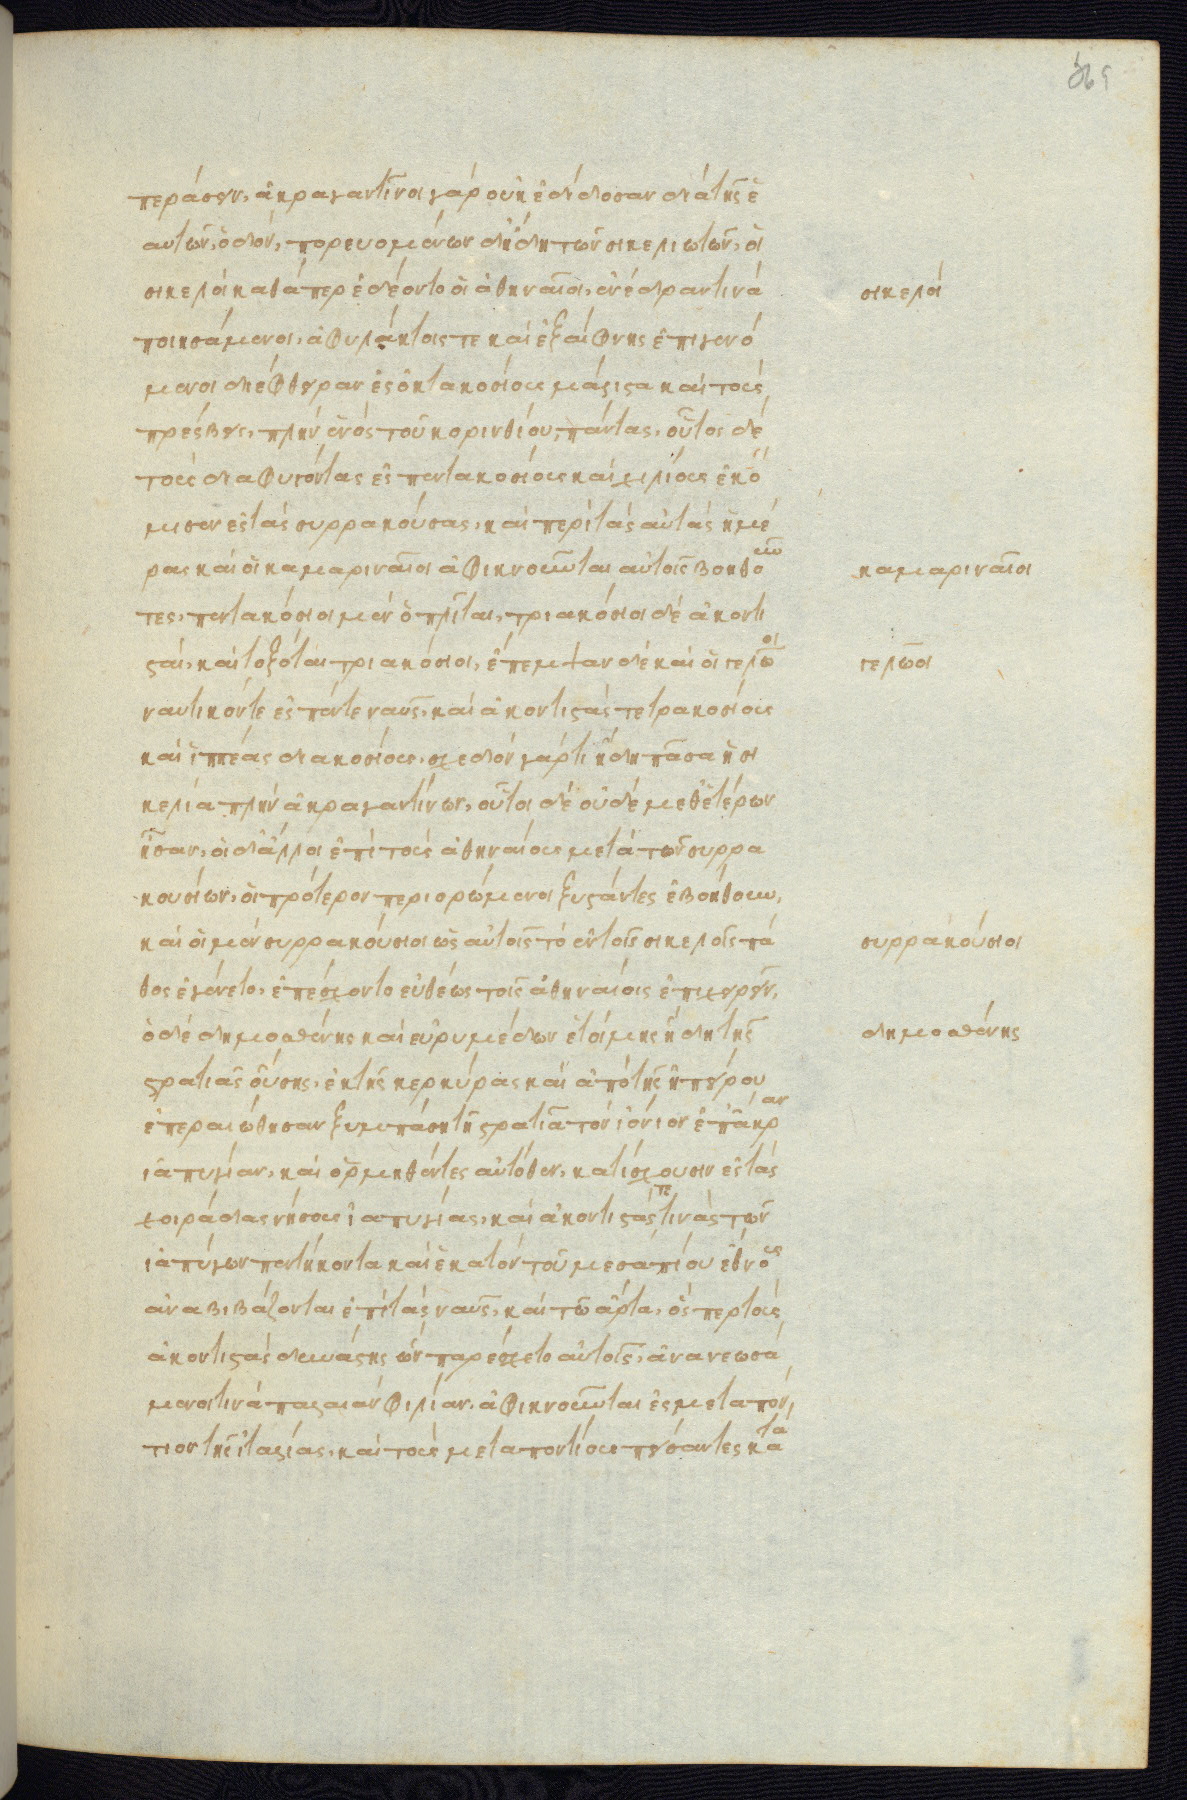 περάσειν, ἀκραγαντῖνοι γὰρ οὐκ ἐδίδοσαν διὰ τῆς ἑ
αυτῶν, ὁδόν, πορευομένων δ᾽ ἤδη τῶν σικελιωτῶν, οἱ
σικελοὶ καθάπερ ἐδέοντο οἱ ἀθηναῖοι, ἐνέδραν τινὰ
σικελοί
ποιησάμενοι, ἀφυλάκτοις τε καὶ ἐξαίφνης ἐπιγενό
μενοι διέφθειραν ἐς ὀκτακοσίους μάλιστα καὶ τοὺς
πρέσβεις, πλὴν ἑνὸς τοῦ κορινθίου, πάντας, οὗτος δὲ
τοὺς διαφυγόντας ἐς πεντακοσίους καὶ χιλίους ἐκό
μισεν ἐς τὰς συρρακούσας, καὶ περὶ τὰς αὐτὰς ἡμέ
ρας καὶ οἱ καμαριναῖοι ἀφικνοῦνται αὐτοῖς βοηθοῦν
καμαριναῖοι
τες, πεντακόσιοι μὲν ὁπλῖται, τριακόσιοι δὲ ἀκοντι
σταὶ, καὶ τοξόται τριακόσιοι, ἔπεμψαν δὲ καὶ οἱ γελῶοι
γελῶοι
ναυτικόν τε ἐς πέντε ναῦς, καὶ ἀκοντιστὰς τετρακοσίους
καὶ ἱππέας διακοσίους, σχεδὸν γάρ τι ἤδη πᾶσα ἡ σι
κελία πλὴν ἀκραγαντίνων, οὗτοι δὲ οὐδὲ μεθ᾽ ἑτέρων
ἦσαν, οἱ δ᾽ ἄλλοι ἐπὶ τοὺς ἀθηναίους μετὰ τῶν συρρα
κουσίων, οἱ πρότερον περιορώμενοι ξυστάντες ἐβοήθουν,
καὶ οἱ μὲν συρρακούσιοι ὡς αὐτοῖς τὸ ἐν τοῖς σικελοῖς πά
συρρακούσιοι
θος ἐγένετο, ἐπέσχοντο εὐθέως τοῖς ἀθηναίοις ἐπιχειρεῖν,
ὁ δὲ δημοσθένης καὶ εὐρυμέδων ἑτοίμης ἤδη τῆς
δημοσθένης
στρατιᾶς οὔσης, ἐκ τῆς κερκύρας καὶ ἀπὸ τῆς ἠπείρου
ἐπεραιώθησαν ξυμπάσῃ τῇ στρατιᾷ τὸν ἰόνιον ἐπ᾽ ἄκραν
ἰαπυγίαν, καὶ ὁρμηθέντες αὐτόθεν, κατίσχουσιν ἐς τὰς
χοιράδας νήσους ἰαπυγίας, καὶ ἀκοντιστάς τέ τινας τῶν
ἰαπύγων πεντήκοντα καὶ ἑκατὸν τοῦ μεσαπίου ἔθνους
ἀναβιβάζονται ἐπὶ τὰς ναῦς, καὶ τῷ ἄρτα, ὅσπερ τοὺς
ἀκοντιστὰς δυνάστης ὢν παρέσχετο αὐτοῖς, ἀνανεωσά
μενοι τινὰ παλαιὰν φιλίαν, ἀφικνοῦνται ἐς μεταπόν
τιον τῆς ἰταλίας, καὶ τοὺς μεταποντίους πείσαντες κατὰ